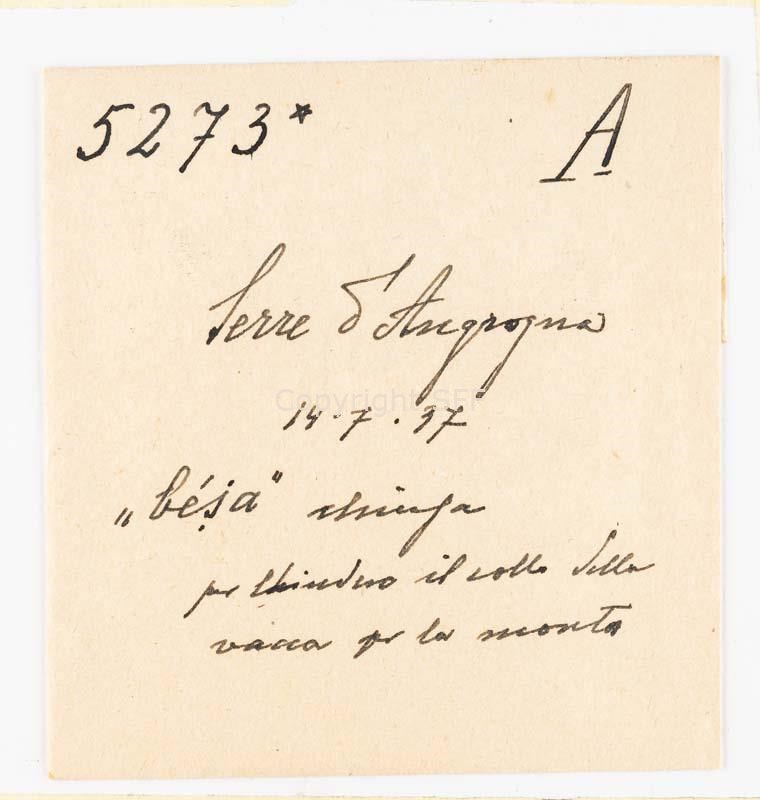 5273* A
Serre d'Angrogna
Copyright SFI
14.7.37
„béṣa" 
per chiudere il collo della
vacca per la monta